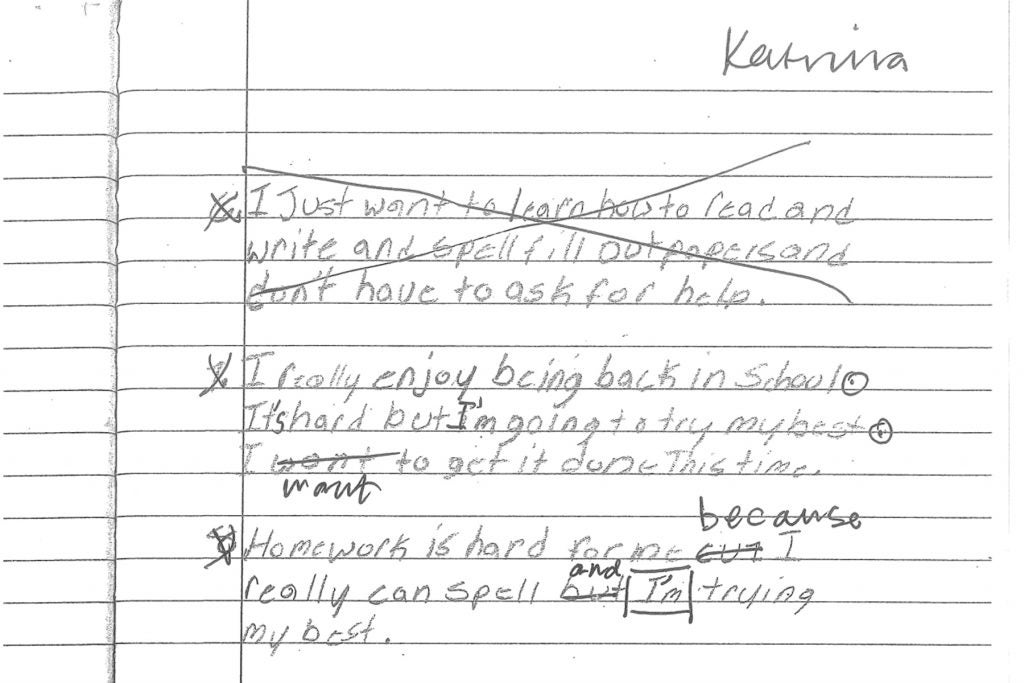 Katrina
I Just want to learn how to read and
write and spell fill out papers and
don't have to ask for help.
I really enjoy being back in School.
It's hard but I'm going to try my best.
I want to get it done This time.
want
because
Homework is hard for me cuz I
and
really can spell but I'm trying
my best.